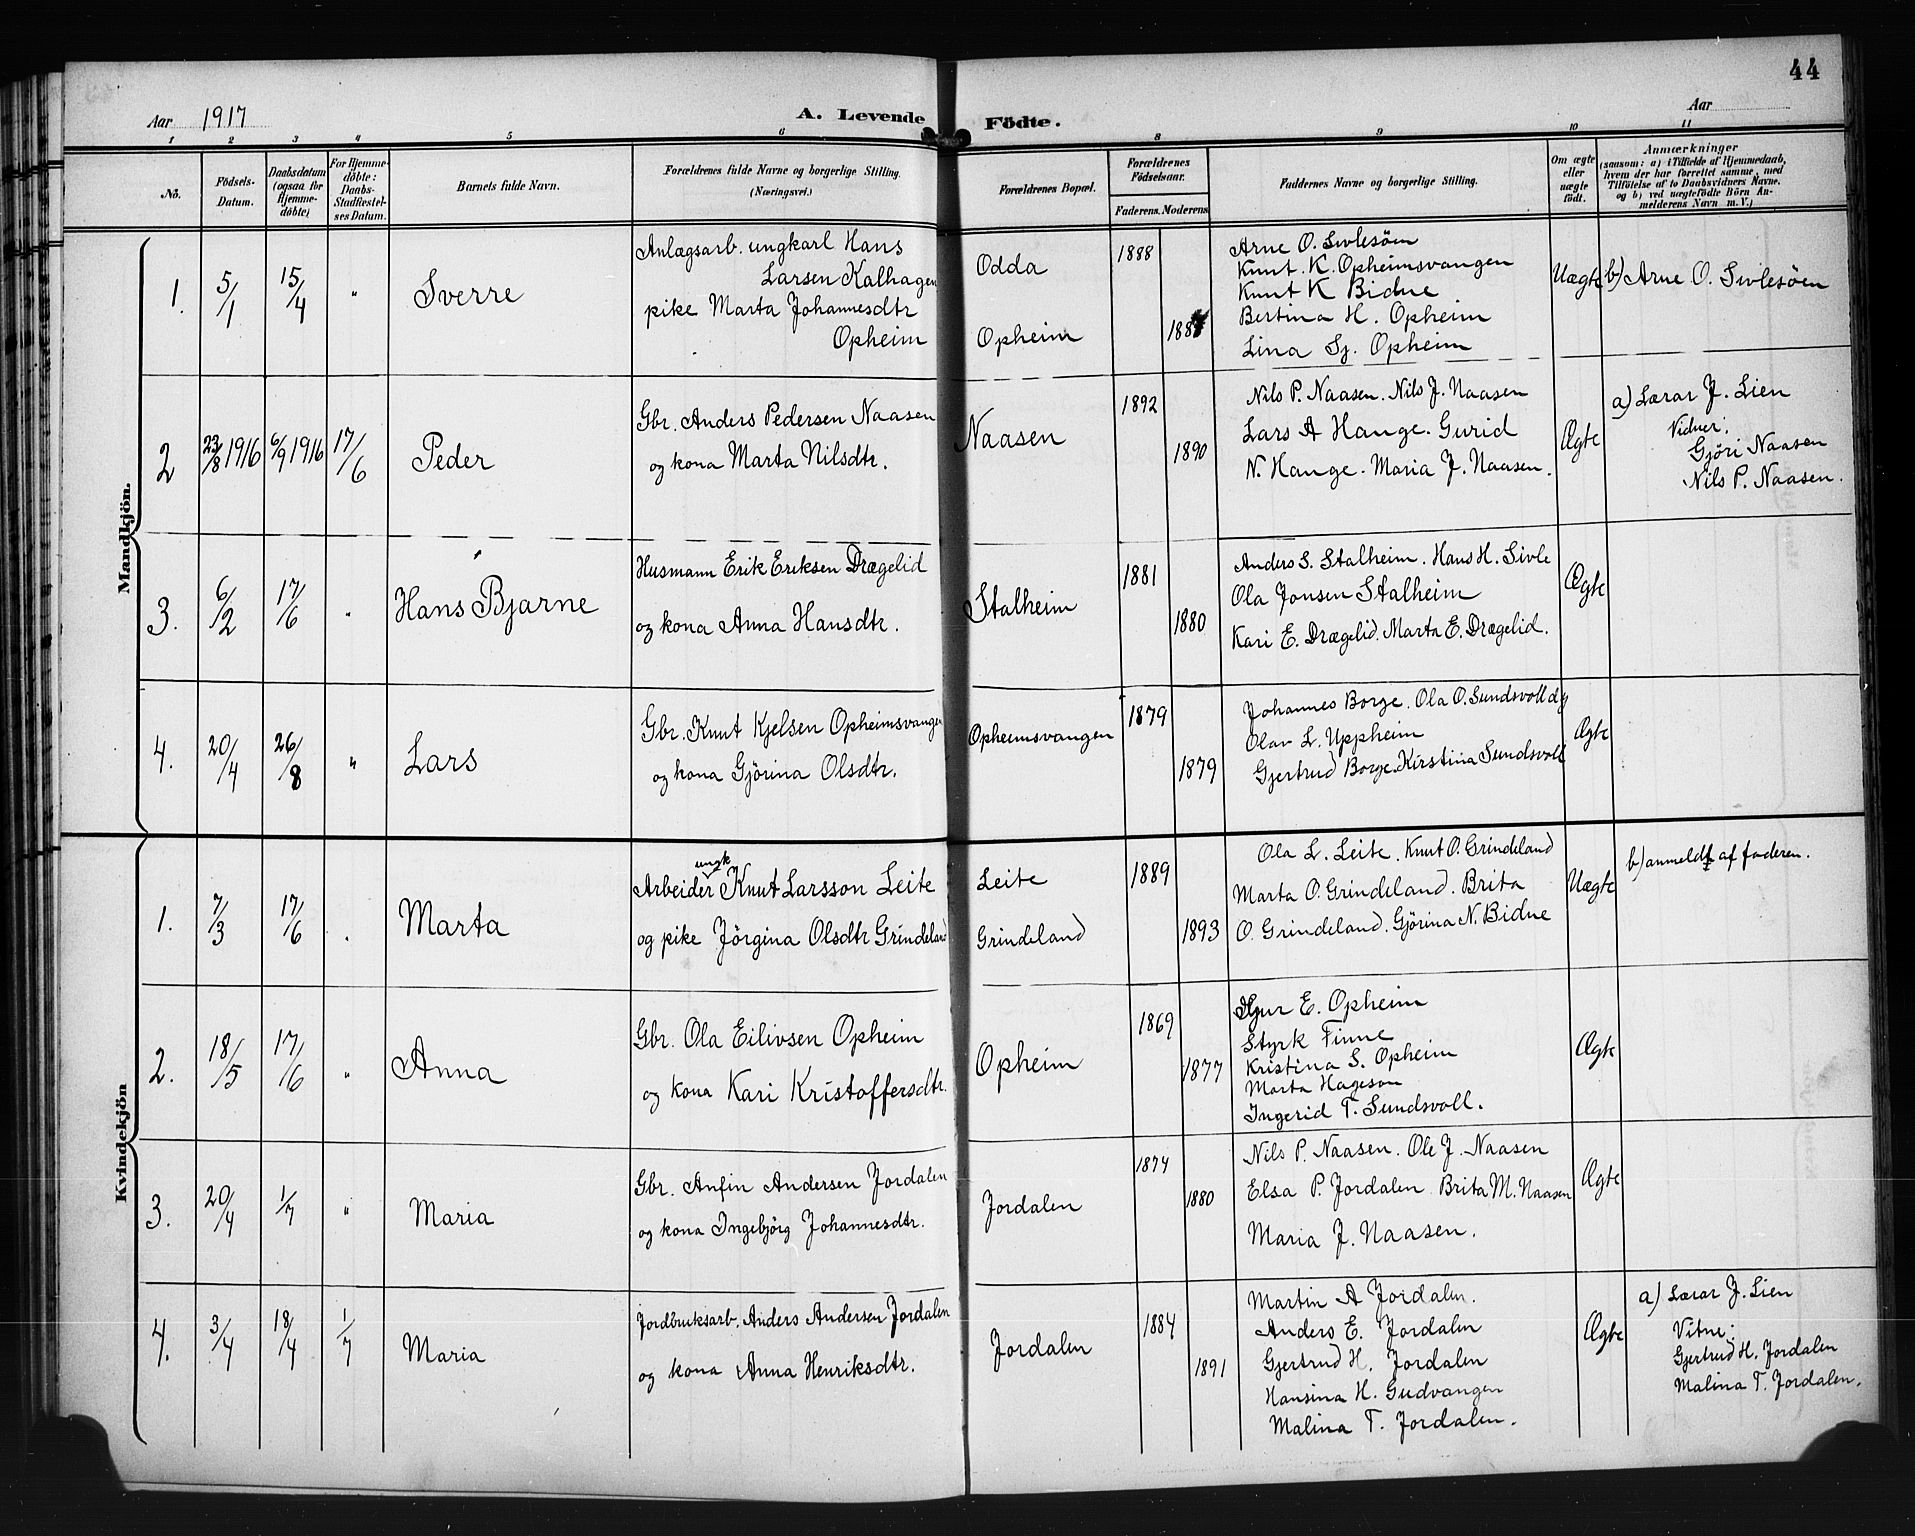 44
Aar 1917
A. Levende Födte.
Aar
1 2 3 4 5 6 8 9 10 11
No.
Födsels-Datum.
Daabsdatum (ogsaa for Hjemme-döbte)
For Hjemme-döbte: Daabs-Stadfæstel-ses Datum.
Barnets fulde Navn.
Forældrenes fulde Navne og borgerlige Stilling. (Næringsvei.)
Forældrenes Bopæl.
Forældrenes Födselsaar.
Faderens. Moderens.
Faddernes Navne og borgerlige Stilling.
Om ægte eller uægte födt.
Anmærkninger
(saasom: a) i Tilfælde af Hjemmedaab,
hvem der har forrettet samme, med
Tilföielse af to Daabsvidners Navne,
og b) ved uægtefödte Börn An-
melderens Navn m. V.)
Mandkjön.
1. 5/1 15/4 " Sverre
Anlægsarb. ungkarl Hans
Larsen Kalhagen
pike Marta Johannesdtr
Opheim
Odda
Opheim
1888
Arne O. Sivlesöen
Knut K. Opheimsvangen
Knut K Bidne
Bertina H. Opheim
Lina Sj. Opheim
Uægte
b) Arne O. Sivlesöen
2 23/8 1916 6/9 1916 17/6 Peder
Gbr. Anders Pedersen Naasen
og kona Marta Nilsdtr.
Naasen
1892
1890
Nils P. Naasen. Nils J. Naasen
Lars A Hauge. Gurid
N. Hauge. Maria J. Naasen.
Ægte
a) Lærar J. Lien
Vidner:
Gjöri Naasen
Nils P. Naasen.
3. 6/2 17/6 " Hans Bjarne
Husmann Erik Eriksen Drægelid
og kona Anna Hansdtr.
Stalheim
1881
1880
Anders S. Stalheim. Hans H. Sivle
Ola Jonsen Stalheim
Kari E. Drægelid. Marta E. Drægelid.
Ægte
4. 20/4 26/8 " Lars
Gbr. Knut Kjelsen Opheimsvangen
og kona Gjörina Olsdtr.
Opheimsvangen
1879
1879
Johannes Borge. Ola O. Sundsvoll
Olav L. Uppheim
Gjertrud Borge. Kirstina Sundsvoll
Ægte
Kvindekjön
1. 7/3 17/6 " Marta
ungk
Arbeider Knut Larsson Leite
og pike Jörgina Olsdtr Grindeland
Leite
Grindeland
1889
1893
Ola L. Leite. Knut O. Grindeland
Marta O. Grindeland. Brita
O. Grindeland. Gjörina N. Bidne
Uægte
b) anmeldt af faderen.
2. 18/5 17/6 " Anna
Gbr. Ola Eilivsen Opheim
og kona Kari Kristoffersdtr.
Opheim
1869
1877
E. Opheim
Styrk Finne
Kristina S. Opheim
Marta Hageson
Ingerid T. Sundsvoll.
Ægte
3. 20/4 1/7 " Maria
Gbr. Anfin Andersen Jordalen
og kona Ingebjörg Johannesdtr.
Jordalen
1874
1880
Nils P. Naasen. Ole J. Naasen
Elsa P. Jordalen. Brita M. Naasen
Maria J. Naasen.
Ægte
4. 3/4 18/4 1/7 Maria
Jordbruksarb. Anders Andersen Jordalen
og kona Anna Henriksdtr.
Jordalen
1884
1891
Martin A Jordalen.
Anders E. Jordalen
Gjertrud H. Jordalen
Hansina H. Gudvangen
Malina T. Jordalen.
Ægte
a) Lærar J. Lien
Vitne:
Gjertrud H. Jordalen
Malina T. Jordalen.